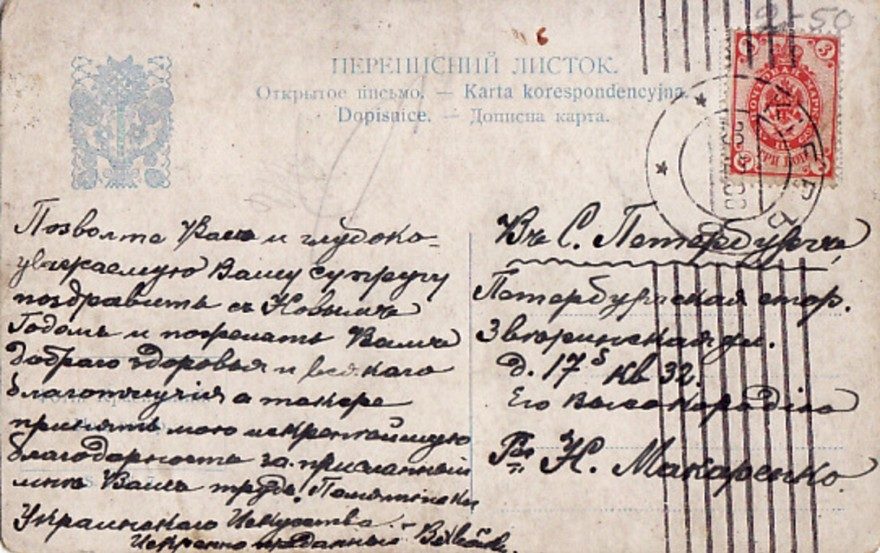 2-50
ПЕРЕПИСНИЙ ЛИСТОК.
Открытое письмо. — Karta korespondencyjna.
Dopisnice. — Дописна карта.
КІЕВЪ
Позвольте Вамъ и глубоко-
уважаемую Вашу супругу
поздравить съ Новымъ
Годомъ и пожелать Вамъ
добраго здоровья и всякаго
благополучія а также
принять мою искреннѣйшую
благодарность за присланный
мнѣ Вашъ трудъ: Памятники
Украинскаго Искусства.
Искренно преданный
Въ С. Петербургъ,
Петербургская стор.
Звѣринская ул.
д. 17 кв 32.
Его Высокородію
Н. Макаренко